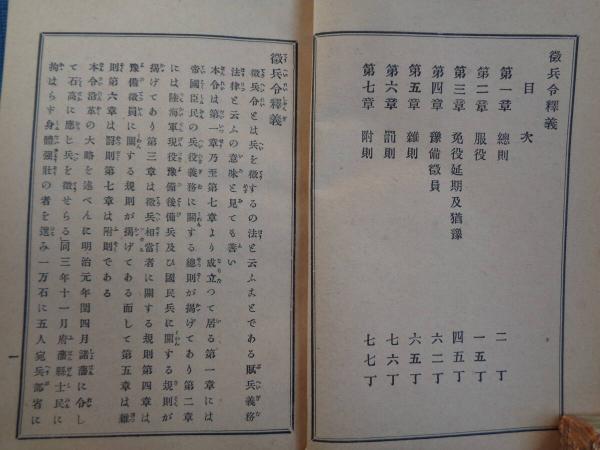 徵兵令釋義
目次
第一章 總則 二丁
第二章 服役 一五丁
第三章 免役延期及猶豫 四五丁
第四章 豫備徵員 六二丁
第五章 雜則 六五丁
第六章 罰則 七六丁
第七章 附則 七七丁
徵兵令釋義
徵兵令とは兵を徵するの法と云ふことである賦兵義務
法律と云ふの意味と見ても善い
本令は第一章乃至第七章より成立つて居る第一章には
帝國臣民の兵役義務に關する總則が揭げてあり第二章
には陸海軍現役豫備後備兵及ひ國民兵に關する規則が
揭げてあり第三章は徵兵相當者に關する規則第四章は
豫備徵員に關する規則が揭げてある而して第五章は雜
則第六章は罰則第七章は附則である
本令沿革の大略を述べんに明治元年閏四月諸藩に令し
て石高に應じ兵を徵せらる」同三年十一月府藩縣士民に
拘はらす身體强壯の者を選み一万石に五人宛兵部省に
一